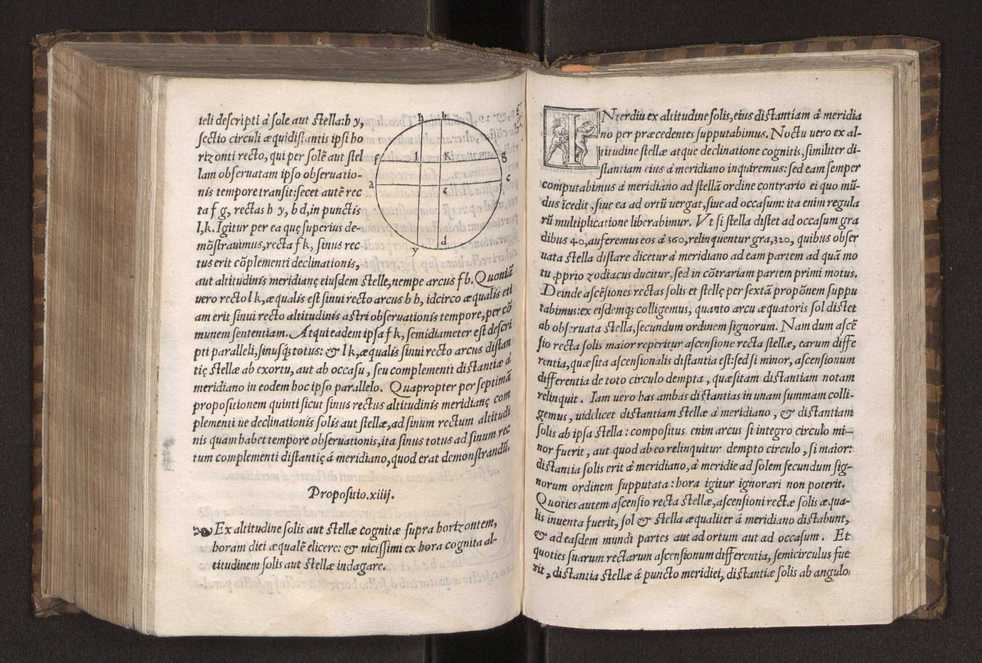 teli descripti à sole aut stella: b y,
sectio circuli æquidistantis ipsi ho
rizonti recto, qui per solẽ aut stel
lam obseruatam ipso obseruatio-
nis tempore transit: secet autẽ rec
ta f g, rectas h y, b d, in punctis
l, k. Igitur per ea quę superius de-
mõstrauimus, recta f k, sinus rec
tus erit cõplementi declinationis,
aut altitudinis meridianę eiusdem stellę, nempe arcus f b. Quoniã
vero recto l k, æqualis est sinui recto arcus b h, idcirco æqualis eti
am erit sinui recto altitudinis astri obseruationis tempore, per cõ
munem sententiam. Atqui eadem ipsa f k, semidiameter est descri
pti paralleli, sinusq́; totus: & l k, æqualis sinui recto arcus distan
tię stellæ ab exortu, aut ab occasu, seu complementi distantiæ à
meridiano in eodem hoc ipso parallelo. Quapropter per septimã
propositionem quinti sicut sinus rectus altitudinis meridianę com
plementi ue declinationis solis aut stellæ, ad sinum rectum altitudi
nis quam habet tempore obseruationis, ita sinus totus ad sinum rec
tum complementi distantię à meridiano, quod erat demonstrandũ.
Propositio.xiiij.
Ex altitudine solis aut stellæ cognitæ supra horizontem,
horam diei æqualẽ elicere: & uicissimi ex hora cognita al-
titudinem solis aut stellæ indagare.
b h f l k g a e c y d
INterdiu ex altitudine solis, eius distantiam à meridia
no per præcedentes supputabimus. Noctu vero ex al-
titudine stellæ atque declinatione cognitis, similiter di-
stantiam eius à meridiano inquiremus: sed eam semper
computabimus à meridiano ad stellã ordine contrario ei quo mũ-
dus icedit, siue ea ad ortũ uergat, siue ad occasum: ita enim regula
rũ multiplicatione liberabimur. Vt si stella distet ad occasum gra
dibus 40, auferemus eos à 360, relinquentur gra, 320, quibus obser
uata stella distare dicetur à meridiano ad eam partem ad quã mo
tu ꝓprio zodiacus ducitur, sed in cõtrariam partem primi motus.
Deinde ascẽsiones rectas solis et stellę per sextã proponẽm suppu
tabimus: ex eisdemq́; colligemus, quanto arcu æquatoris sol distet
ab obseruata stella, secundum ordinem signorum. Nam dum ascẽ
sio recta solis maior reperitur ascensione recta stellæ, earum diffe
rentia, quæsita ascensionalis distantia est: sed si minor, ascensionum
differentia de toto circulo dempta, quæsitam distantiam notam
relinquit. Iam uero has ambas distantias in unam summam colli-
gemus, uidelicet distantiam stellæ à meridiano, & distantiam
solis ab ipsa stella: compositus enim arcus si integro circulo mi-
nor fuerit, aut quod ab eo relinquitur dempto circulo, si maior:
distantia solis erit à meridiano, à meridie ad solem secundum sig-
norum ordinem supputata: hora igitur ignorari non poterit.
Quoties autem ascensio recta stellæ, ascensioni rectæ solis æqua-
lis inuenta fuerit, sol & stella æqualiter à meridiano distabunt,
& ad easdem mundi partes aut ad ortum aut ad occasum. Et
quoties suarum rectarum ascensionum differentia, semicirculus fue
rit, distantia stellæ à puncto meridiei, distantiæ solis ab angulo